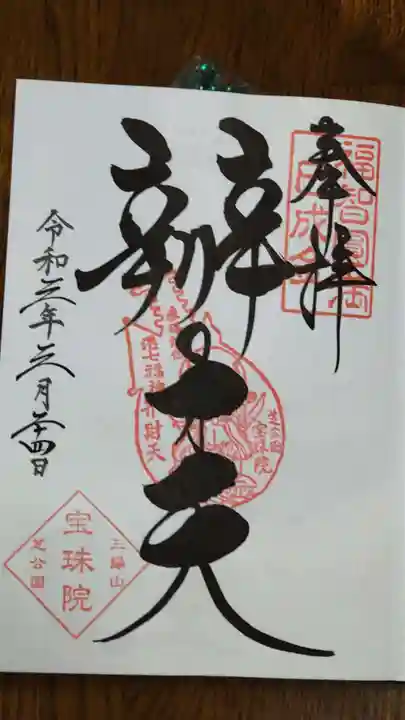 奉拝
福智圓満
辨才天
港七福神弁財天
芝公園
宝珠院
令和三年三月二十四日
三縁山
宝珠院
芝公園